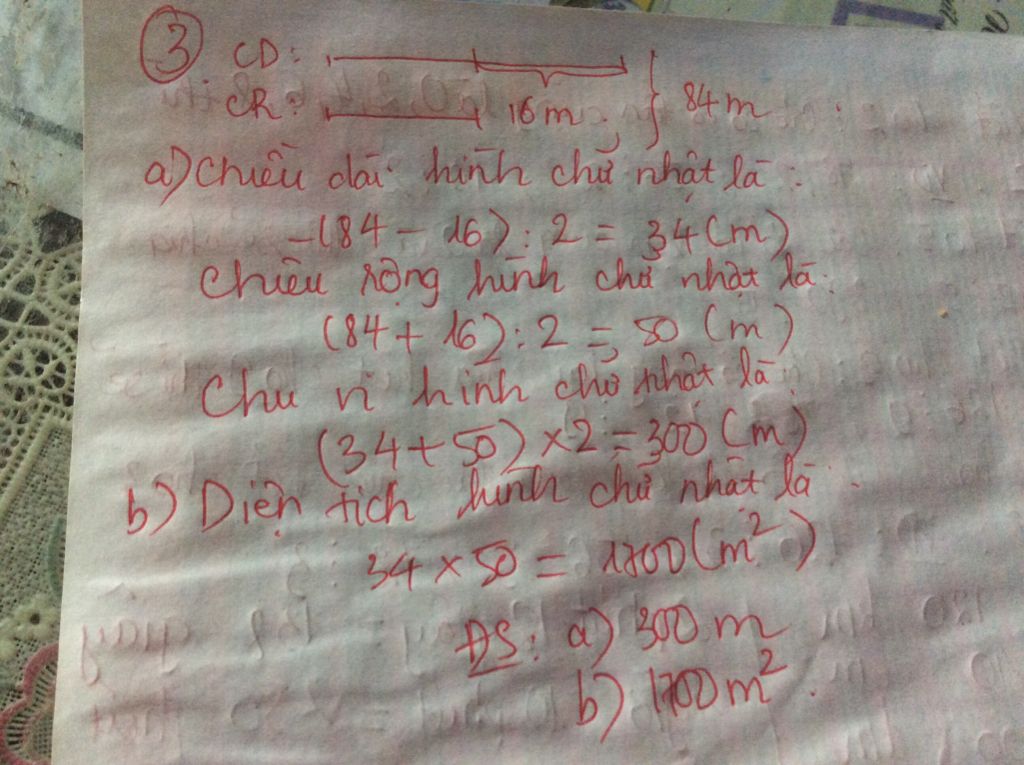 3 CD:
CR: 16 m 84 m
a) Chiều dài hình chữ nhật là:
(84 - 16) : 2 = 34 (m)
Chiều rộng hình chữ nhật là:
(84 + 16) : 2 = 50 (m)
Chu vi hình chữ nhật là:
(34 + 50) × 2 = 300 (m)
b) Diện tích hình chữ nhật là:
34 × 50 = 1700 (m²)
ĐS: a) 300 m
b) 1700 m².